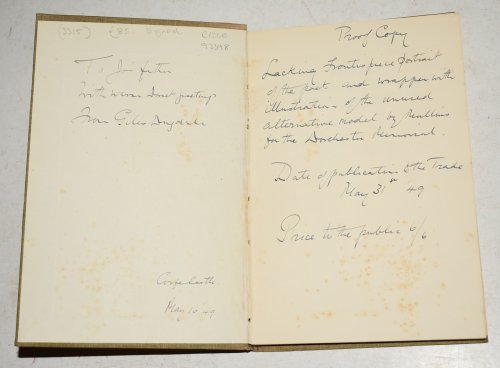 (3315) £85. Signed
93898
To Jim
with warm Dorset greetings
from Giles Dugdale
Corfe Castle.
May 10 '49
Proof Copy
Lacking Frontispiece portrait
of the poet and wrapper with
illustrations of the unused
alternative model by Mullins
for the Dorchester Memorial.
Date of publication to the Trade
May 31st '49
Price to the public 6/6